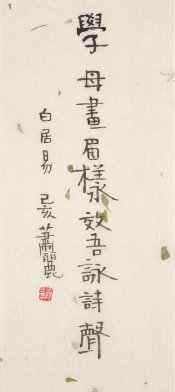 學母畫眉樣效吾詠詩聲
白居易 己亥 蕭麗